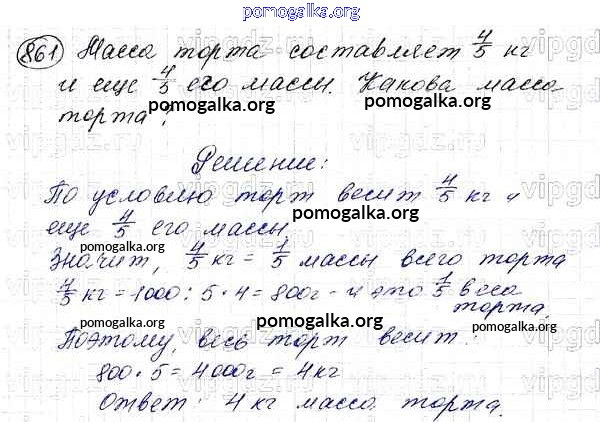 pomogalka.org
861 Масса торта составляет 4/5 кг
и еще 4/5 его массы. Какова масса
pomogalka.org
торта?
Решение:
По условию торт весит 4/5 кг и
pomogalka.org
еще 4/5 его массы.
pomogalka.org
Значит, 4/5 кг = 1/5 массы всего торта
4/5 кг = 1000 : 5 · 4 = 800г - и это 1/5 веса
торта.
pomogalka.org
pomogalka.org
Поэтому, весь торт весит:
800 · 5 = 4000г = 4кг
pomogalka.org
Ответ: 4 кг масса торта.
pomogalka.org